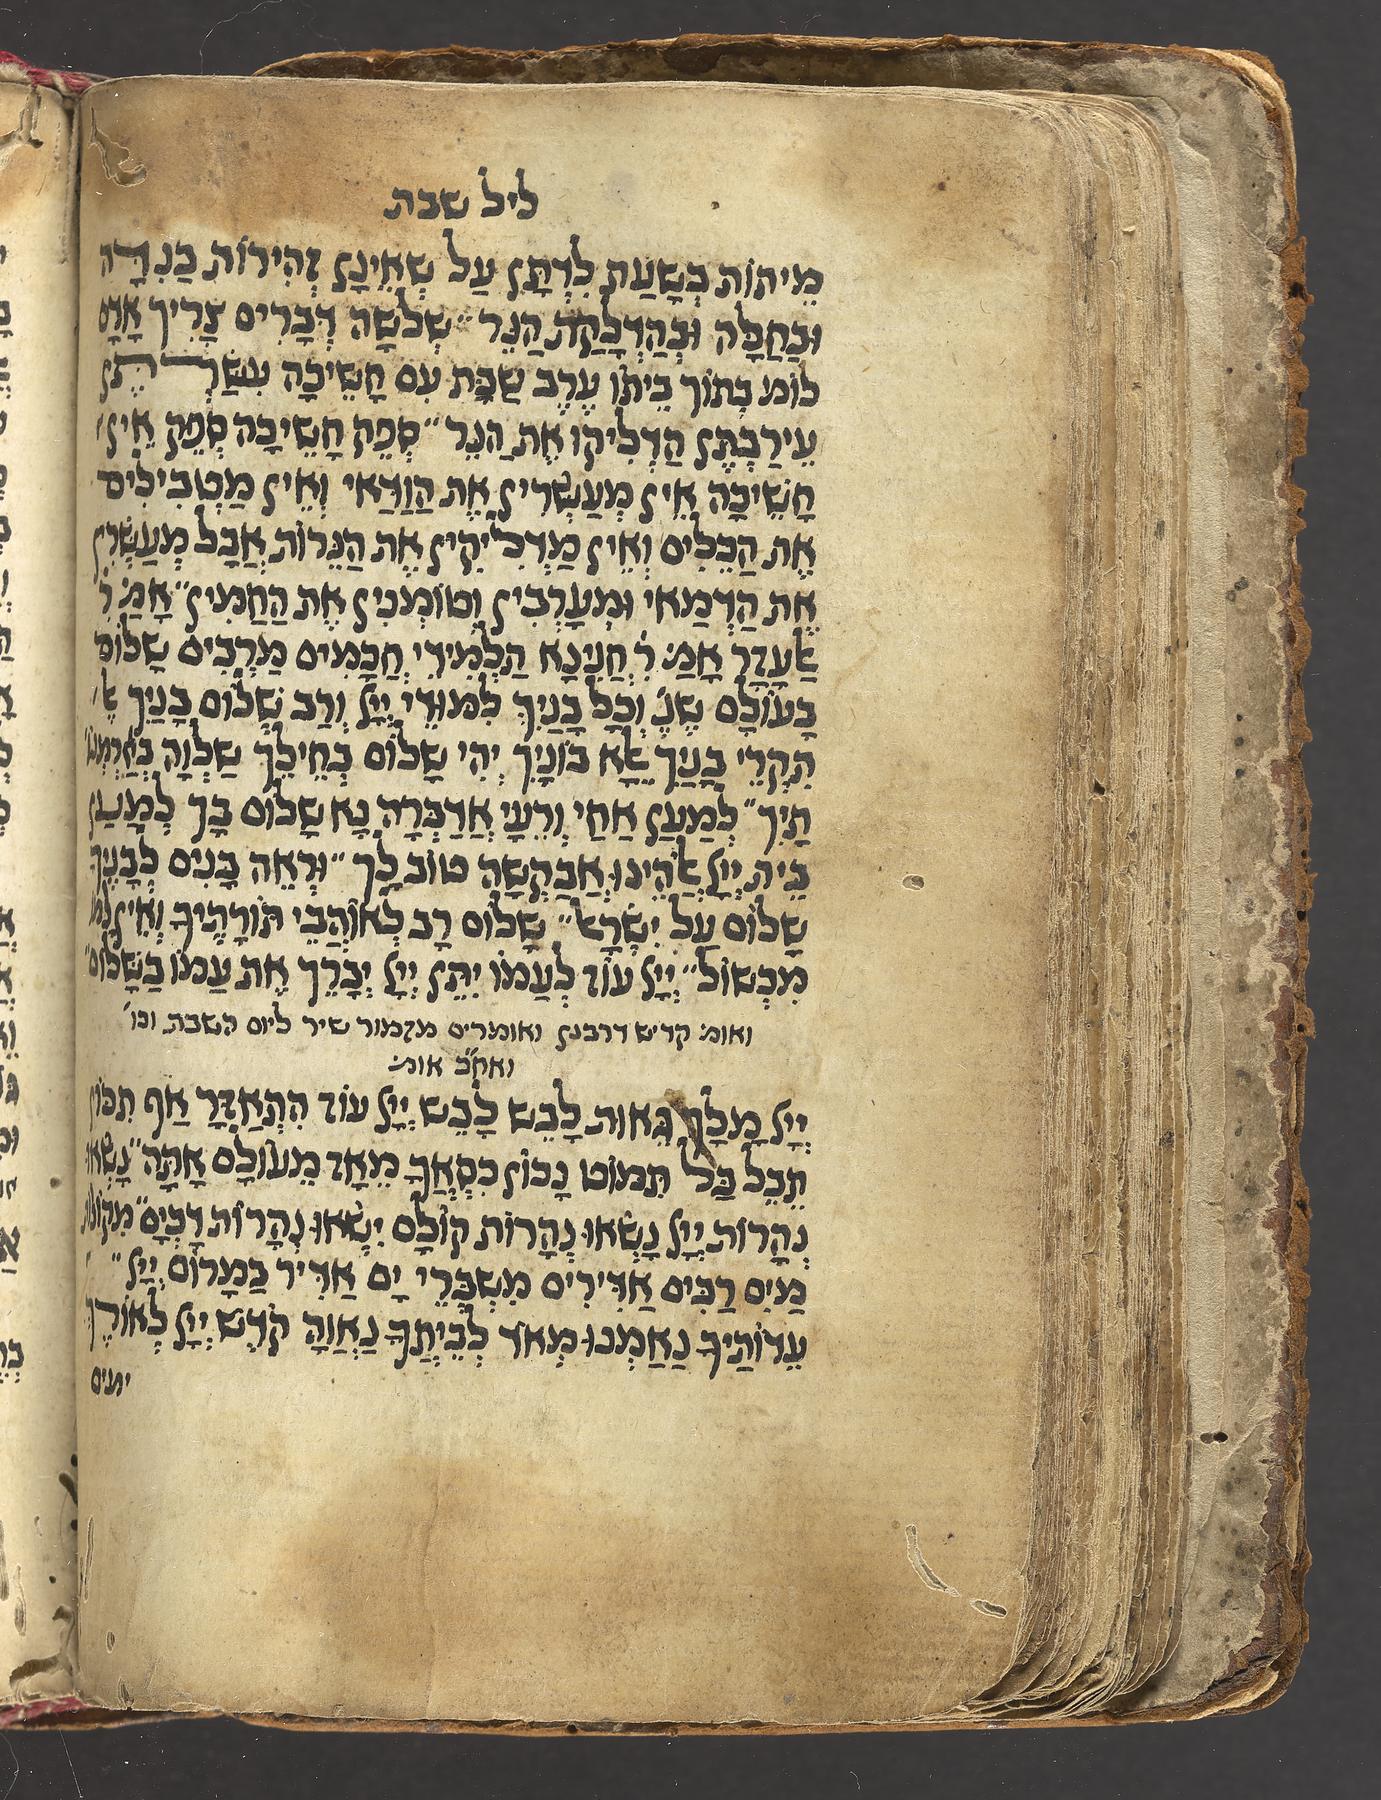 ליל שבת
מֵיתוֹת בְּשָׁעַת לֵדָתָן עַל שֶׁאֵינָן זְהִירוֹת בַּנִדָּה
וּבַחַלָּה וּבְהַדְלָקַת הַנֵּר״ שְׁלֹשָׁה דְבָרִים צָרִיךְ אָדָם
לוֹמ׳ בְּתוֹךְ בֵּיתוֹ עֶרֶב שַׁבָּת עִם חֲשֵׁיכָה עִשַּׂרְתֶּן
עֵירַבְתֶּן הַדְלִיקוּ אֶת הַנֵּר״ סָפֵק חֲשֵׁיכָה סָפֵק אֵין
חֲשֵׁיכָה אֵין מְעַשְּׂרִין אֶת הַוַדַּאי וְאֵין מַטְבִּילִים
אֶת הַכֵּלִים וְאֵין מַדְלִיקִין אֶת הַנֵּרוֹת אֲבָל מְעַשְּׂרִין
אֶת הַדְּמַאי וּמְעָרְבִין וְטוֹמְנִין אֶת הַחַמִּין״ אָמַ׳ ר׳
אֶלְעָזָר אָמַ׳ ר׳ חֲנִינָא תַּלְמִידֵי חֲכָמִים מַרְבִּים שָׁלוֹם
בָּעוֹלָם שֶׁנֶ׳ וְכָל בָּנַיִךְ לִמּוּדֵי יְיָ וְרַב שְׁלוֹם בָּנַיִךְ אַ׳
תִּקְרֵי בָּנַיִךְ אֶלָּא בּוֹנָיִךְ יְהִי שָׁלוֹם בְּחֵילֵךְ שַׁלְוָה בְּאַרְמְנוֹ
תַיִךְ״ לְמַעַן אַחַי וְרֵעָי אֲדַבְּרָה נָא שָׁלוֹם בָּךְ לְמַעַן
בֵּית יְיָ אֱלֹהֵינוּ אֲבַקְשָׁה טוֹב לָךְ״ וּרְאֵה בָנִים לְבָנֶיךָ
שָׁלוֹם עַל יִשְׂרָאֵל״ שָׁלוֹם רָב לְאוֹהֲבֵי תּוֹרָתֶיךָ וְאֵין לָמוֹ
מִכְשׁוֹל״ יְיָ עוֹז לְעַמּוֹ יִתֵּן יְיָ יְבָרֵךְ אֶת עַמּוֹ בַשָּׁלוֹם״
ואומ׳ קדיש דרבנן ואומרים מזמור שיר ליום השבת וכו׳
ואח״כ אומ׳
יְיָ מָלָךְ גֵּאוּת לָבֵשׁ לָבֵשׁ יְיָ עוֹז הִתְאַזָּר אַף תִּכּוֹן
תֵּבֵל בַּל תִּמּוֹט נָכוֹן כִּסְאֲךָ מֵאָז מֵעוֹלָם אָתָּה״ נָשְׂאוּ
נְהָרוֹת יְיָ נָשְׂאוּ נְהָרוֹת קוֹלָם יִשְׂאוּ נְהָרוֹת דָּכְיָם״ מִקּוֹלוֹת
מַיִם רַבִּים אַדִּירִים מִשְׁבְּרֵי יָם אַדִּיר בַּמָּרוֹם יְיָ״
עֵדוֹתֶיךָ נֶאֶמְנוּ מְאֹד לְבֵיתְךָ נַאֲוָה קֹדֶשׁ יְיָ לְאוֹרֶךְ
ימים